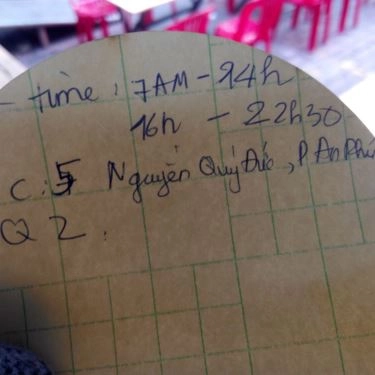 - time: 7AM - 14h
16h - 22h30
C: 5 Nguyễn Quý Đức, P An Phú
Q 2.